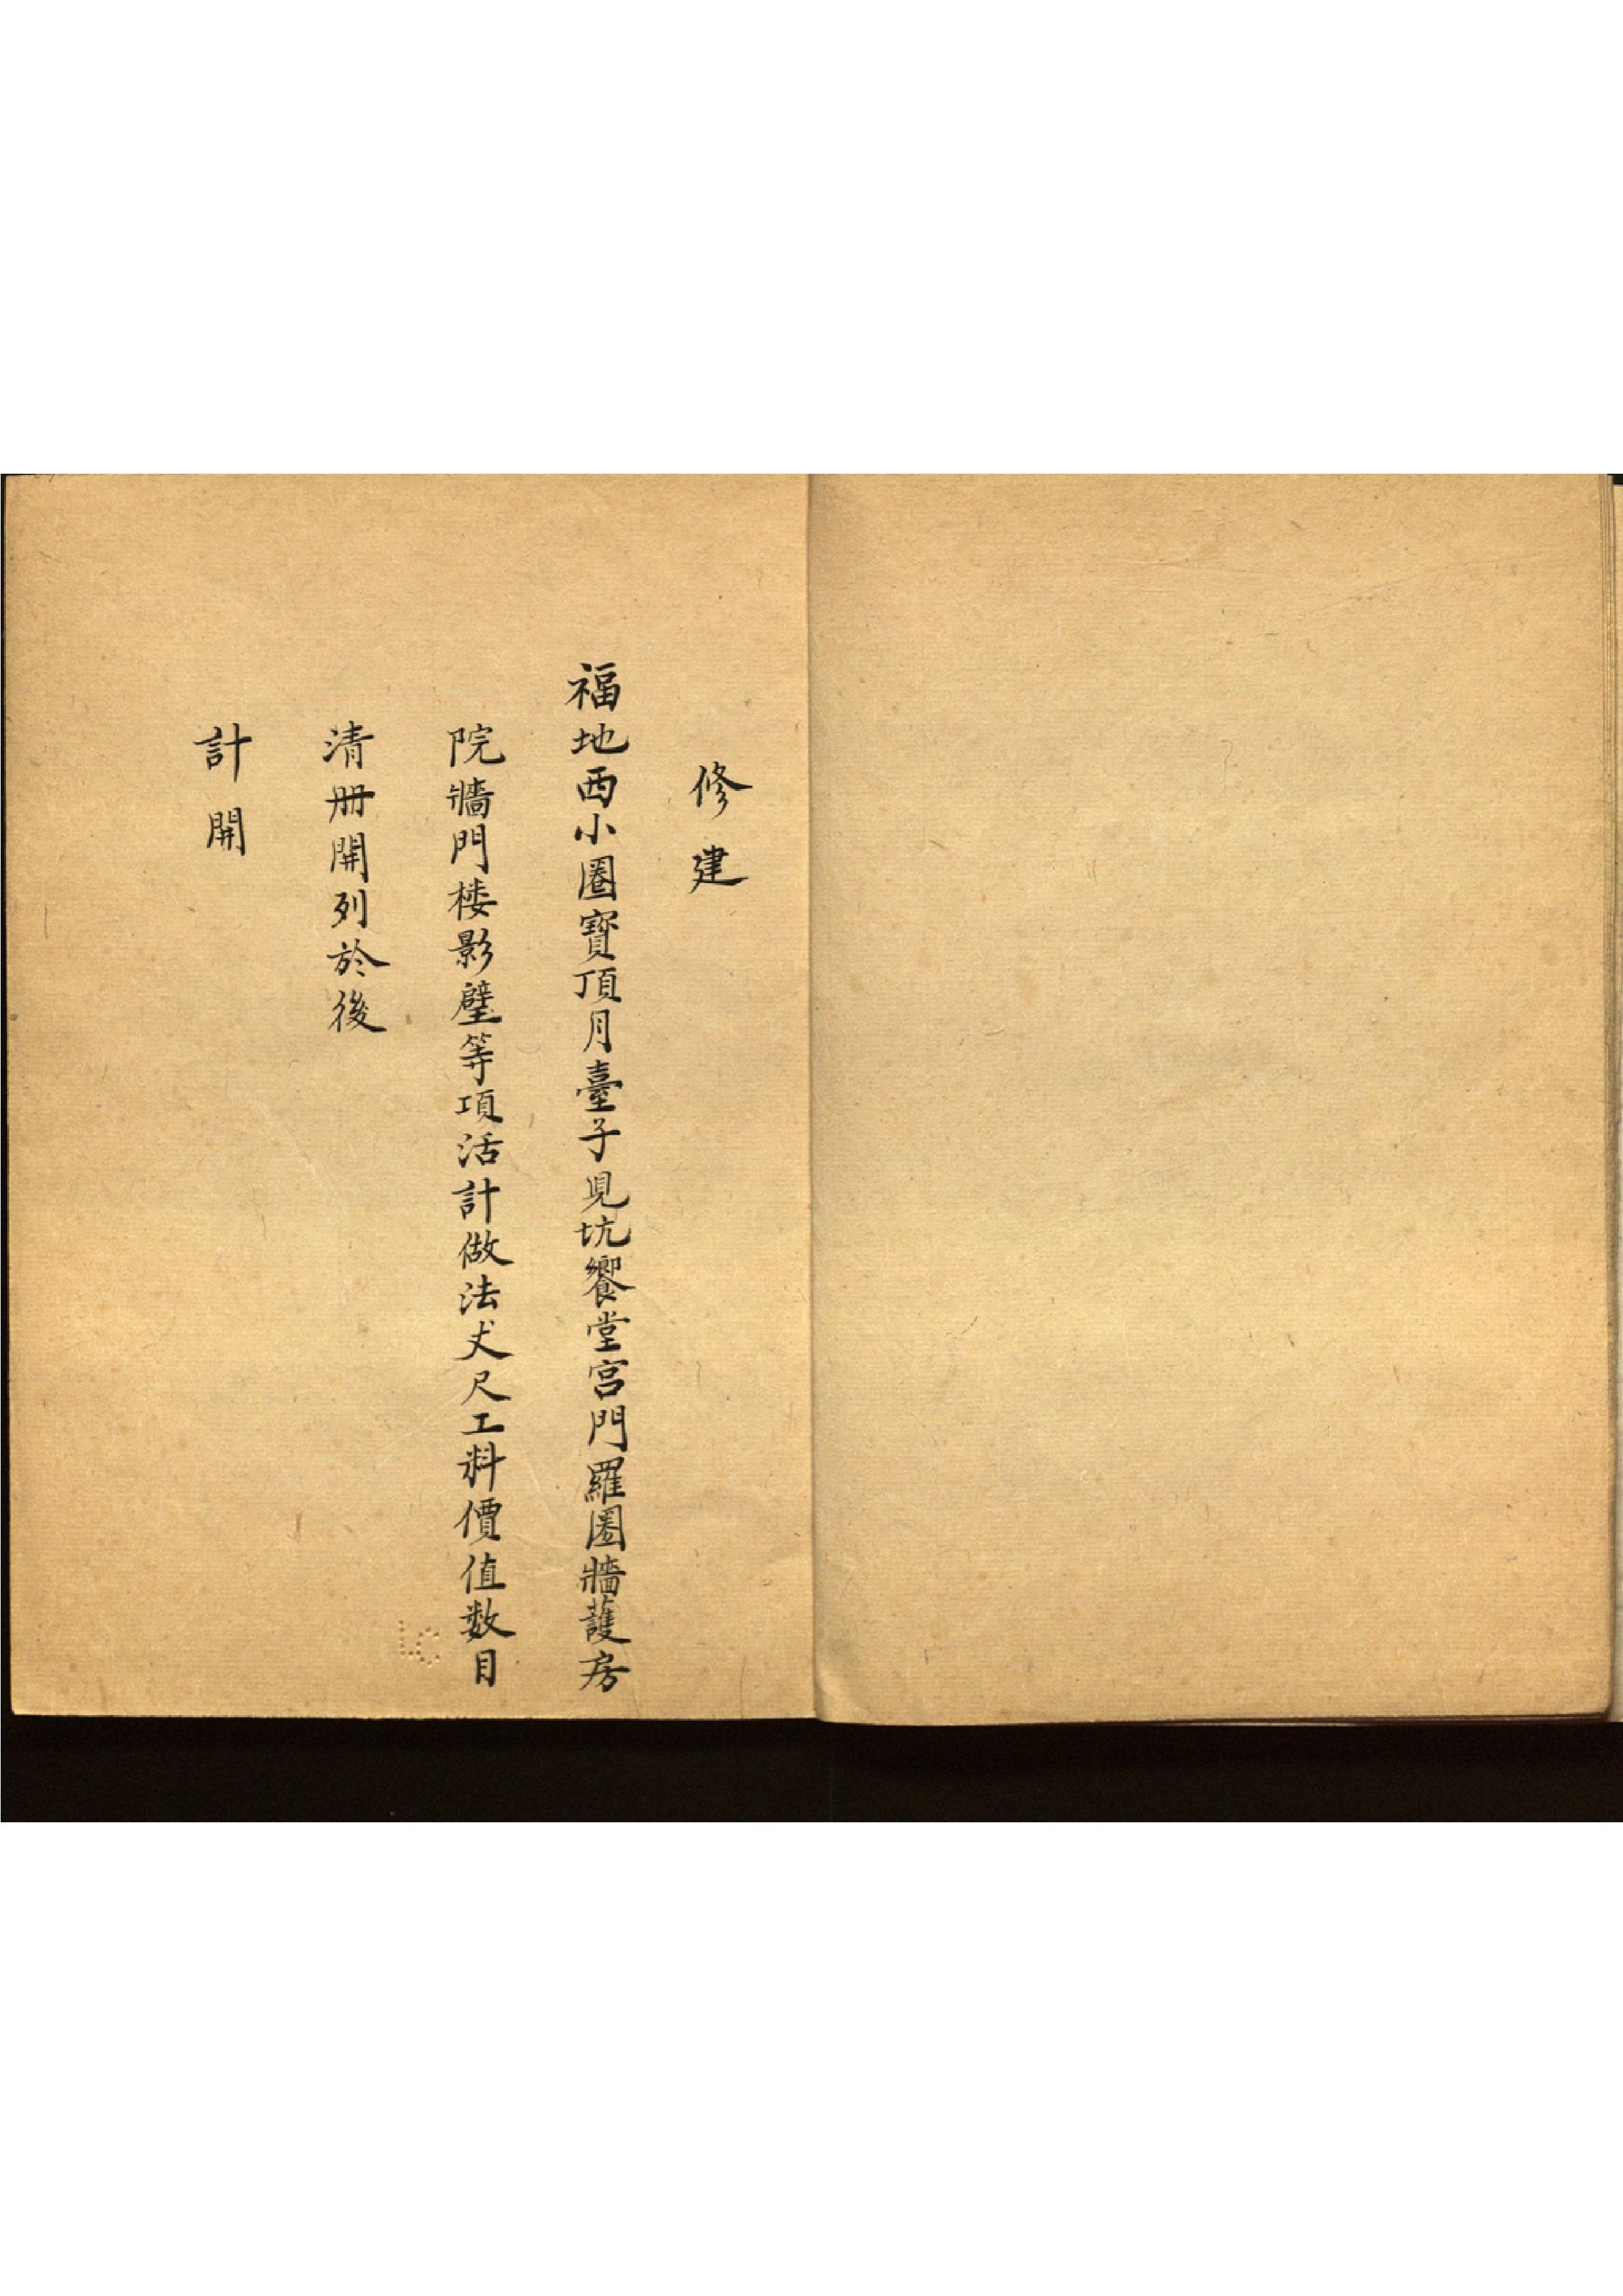 修建
福地西小圈寶頂月臺子見坑饗堂宮門羅圈牆護房
院牆門楼影壁等項活計做法丈尺工料價值数目
清冊開列於後
計開
LC